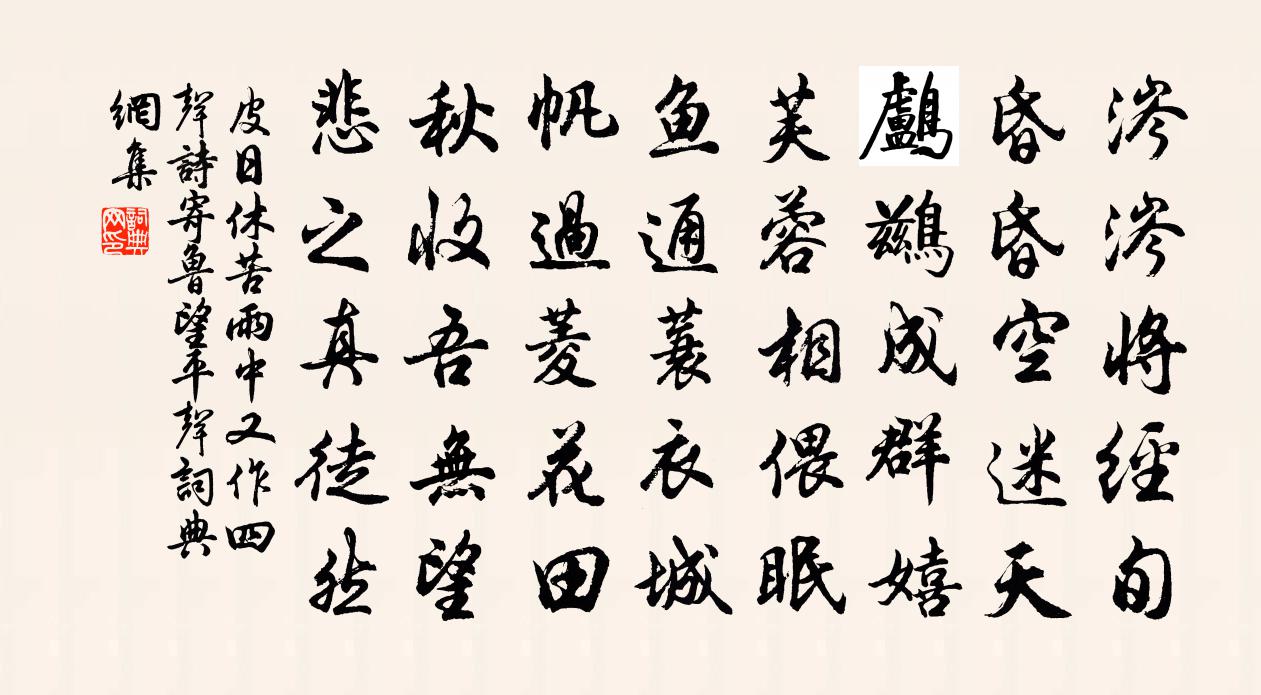 涔涔將經旬
昏昏空迷天
鸕鷀成群嬉
芙蓉相偎眠
鱼通蓑衣城
帆過菱花田
秋收吾無望
悲之真徒然
皮日休苦雨中又作四
聲詩寄魯望平聲詞典
網集
詞典网印